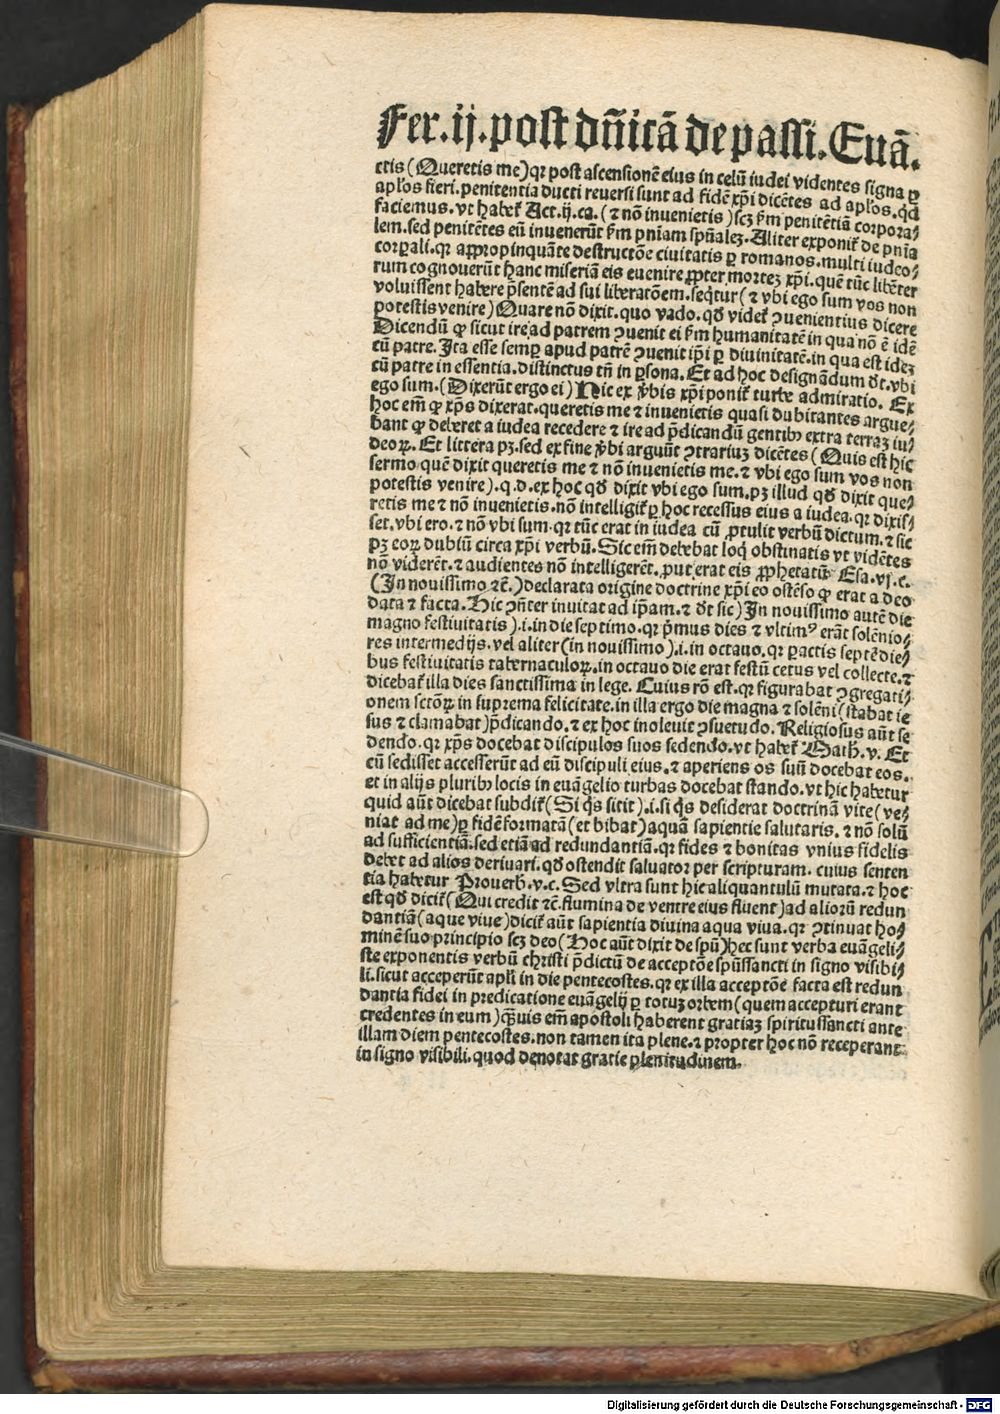 Fer.ij.post dñicā de passi.Euā.
ctis (Queretis me) qꝛ post ascensionē eius in celū iudei videntes signa ꝑ
apl̓os fieri.penitentia ducti reuersi sunt ad fidē xp̄i dicētes ad apl̓os.qd̓
faciemus.vt habet᷑ Act.ij.ca.(⁊ nō inuenietis) scꝫ ẜm penitētiā corpora⸗
lem.sed penitētes eū inuenerūt ẜm pn̄iam sp̄ualeꝫ.Aliter exponit᷑ de pn̄ia
corꝑali.qꝛ appropinquāte destructōe ciuitatis ꝑ romanos.multi iudeo⸗
rum cognouerūt hanc miseriā eis euenire ꝓpter morteꝫ xp̄i.quē tūc libēter
voluissent habere p̄sentē ad sui liberatōem.seqt̄ur (⁊ vbi ego sum vos non
potestis venire) Quare nō dixit.quo vado.qd̓ videt᷑ ꝯuenientius dicere
Dicendū ꝙ sicut ire ad patrem ꝯuenit ei ẜm humanitatē in qua nō ē idē
cū patre.Ita esse semꝑ apud patrē ꝯuenit ip̄i ꝑ diuinitatē.in qua est ideꝫ
cū patre in essentia.distinctus tn̄ in ꝑsona.Et ad hoc designādum d̓t.vbi
ego sum.(Dixerūt ergo ei) Hic ex v̓bis xp̄i ponit᷑ turbe admiratio. Ex
hoc em̄ ꝙ xp̄s dixerat.queretis me ⁊ inuenietis quasi dubitantes argue⸗
bant ꝙ deberet a iudea recedere ⁊ ire ad p̄dicandū gentibꝫ extra terraꝫ iu⸗
deoꝝ. Et littera pꝫ.sed ex fine v̓bi arguūt ꝯtrariuꝫ dicētes (Quis est hic
sermo quē dixit queretis me ⁊ nō inuenietis me.⁊ vbi ego sum vos non
potestis venire).q.d.ex hoc qd̓ dixit vbi ego sum.pꝫ illud qd̓ dixit que⸗
retis me ⁊ nō inuenietis.nō intelligit᷑ ꝑ hoc recessus eius a iudea.qꝛ dixis⸗
set.vbi ero.⁊ nō vbi sum.qꝛ tūc erat in iudea cū ꝓtulit verbū dictum.⁊ sic
pꝫ eoꝝ dubiū circa xp̄i verbū.Sic em̄ debebat loqi obstinatis vt vidētes
nō viderēt.⁊ audientes nō intelligerēt.ꝓut erat eis ꝓphetatū Esa.vj.c.
(In nouissimo ⁊c̄.) declarata origine doctrine xp̄i eo ostēso ꝙ erat a deo
data ⁊ facta.Hic ꝯn̄ter inuitat ad ip̄am.⁊ d̓t sic) In nouissimo autē die
magno festiuitatis).i.in die septimo.qꝛ p̄mus dies ⁊ vltimꝰ erāt solēnio⸗
res intermedijs.vel aliter (in nouissimo).i.in octauo.qꝛ ꝑactis septē die⸗
bus festiuitatis tabernaculoꝝ.in octauo die erat festū cetus vel collecte.⁊
dicebat᷑ illa dies sanctissima in lege. Cuius rō est.qꝛ figurabat ꝯgregati⸗
onem sctōꝝ in suprema felicitate.in illa ergo die magna ⁊ solēni (stabat ie
sus ⁊ clamabat) p̄dicando.⁊ ex hoc inoleuit ꝯsuetudo. Religiosus aūt se
dendo.qꝛ xp̄s docebat discipulos suos sedendo.vt habet᷑ Math̓.v. Et
cū sedisset accesserūt ad eū discipuli eius.⁊ aperiens os suū docebat eos.
et in alijs pluribꝫ locis in euāgelio turbas docebat stando.vt hic habetur
quid aūt dicebat subdit᷑ (Si q̓s sitit).i.si q̓s desiderat doctrinā vite (ve⸗
niat ad me) ꝑ fidē formatā (et bibat) aquā sapientie salutaris.⁊ nō solū
ad sufficientiā.sed etiā ad redundantiā.qꝛ fides ⁊ bonitas vnius fidelis
debet ad alios deriuari.qd̓ ostendit saluator per scripturam. cuius senten
tia habetur Prouerb̓.v.c. Sed vltra sunt hic aliquantulū mutata.⁊ hoc
est qd̓ dicit᷑ (Qui credit ⁊c̄.flumina de ventre eius fluent) ad alioꝛū redun
dantiā (aque viue) dicit᷑ aūt sapientia diuina aqua viua.qꝛ ꝯtinuat ho⸗
minē suo principio scꝫ deo (Hoc aūt dixit de spū) hec sunt verba euāgeli⸗
ste exponentis verbū christi p̄dictū de acceptōe spūssancti in signo visibi⸗
li.sicut acceperūt apl̓i in die pentecostes.qꝛ ex illa acceptōe facta est redun
dantia fidei in predicatione euāgelij ꝑ totuꝫ orbem (quem accepturi erant
credentes in eum) q̄uis em̄ apostoli haberent gratiaꝫ spiritussancti ante
illam diem pentecostes.non tamen ita plene.⁊ propter hoc nō receperant
in signo visibili.quod denotat gratie plenitudinem.
Digitalisierung gefördert durch die Deutsche Forschungsgemeinschaft - DFG